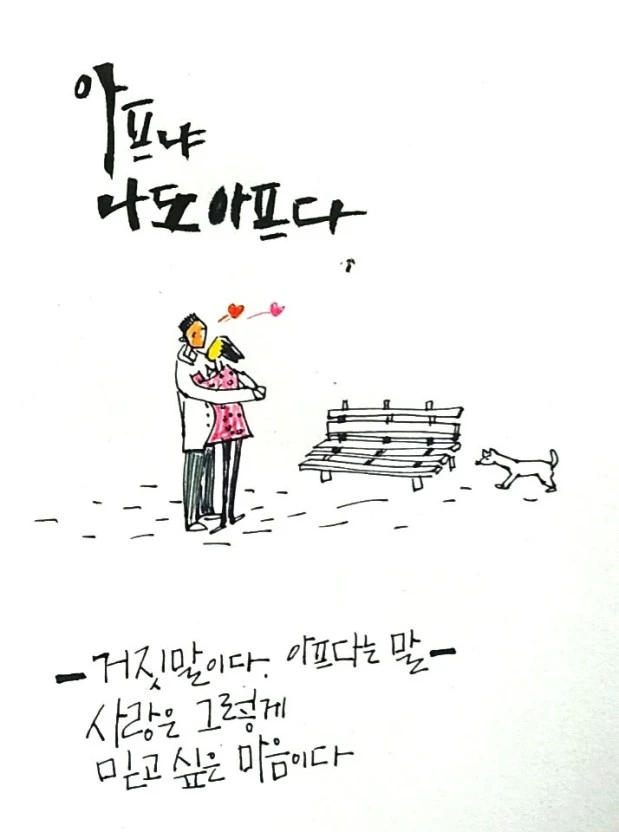 아프냐
나도 아프다
- 거짓말이다. 아프다는 말 -
사랑은 그렇게
믿고 싶은 마음이다